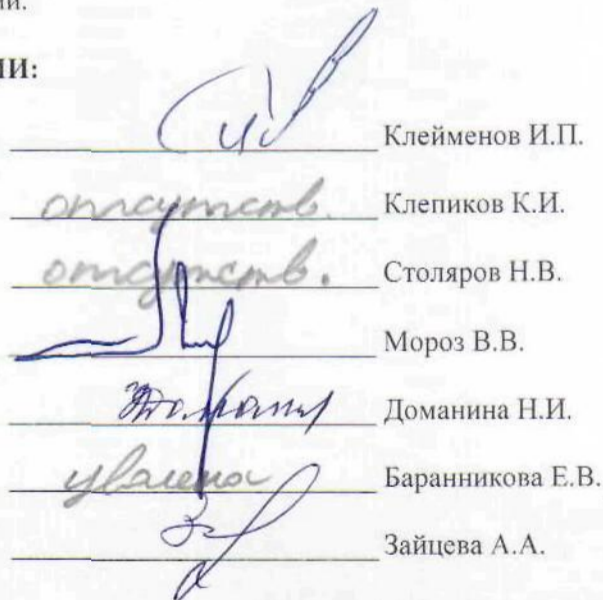 ии:
Клейменов И.П.
отсутств. Клепиков К.И.
отсутств. Столяров Н.В.
Мороз В.В.
Доманина Н.И.
уволена Баранникова Е.В.
Зайцева А.А.